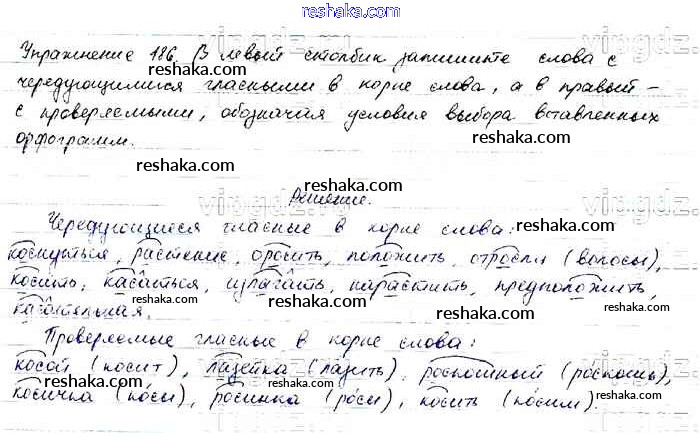 reshaka.com
Упражнение 186. В левый столбик запишите слова с
reshaka.com
чередующимися гласными в корне слова, а в правый –
reshaka.com
с проверяемыми, обозначая условия выбора вставленных
орфограмм.
reshaka.com
reshaka.com
Решение.
reshaka.com
Чередующиеся гласные в корне слова:
коснуться, растение, оросить, положить, отросли (волосы),
reshaka.com
косить, касаться, излагать, нарастить, предположить,
reshaka.com
касательная.
reshaka.com
Проверяемые гласные в корне слова:
reshaka.com
косой (косит), лазейка (лазить), роскошный (роскошь),
reshaka.com
косичка (косы), росинка (росы), косить (косим).
reshaka.com
reshaka.com